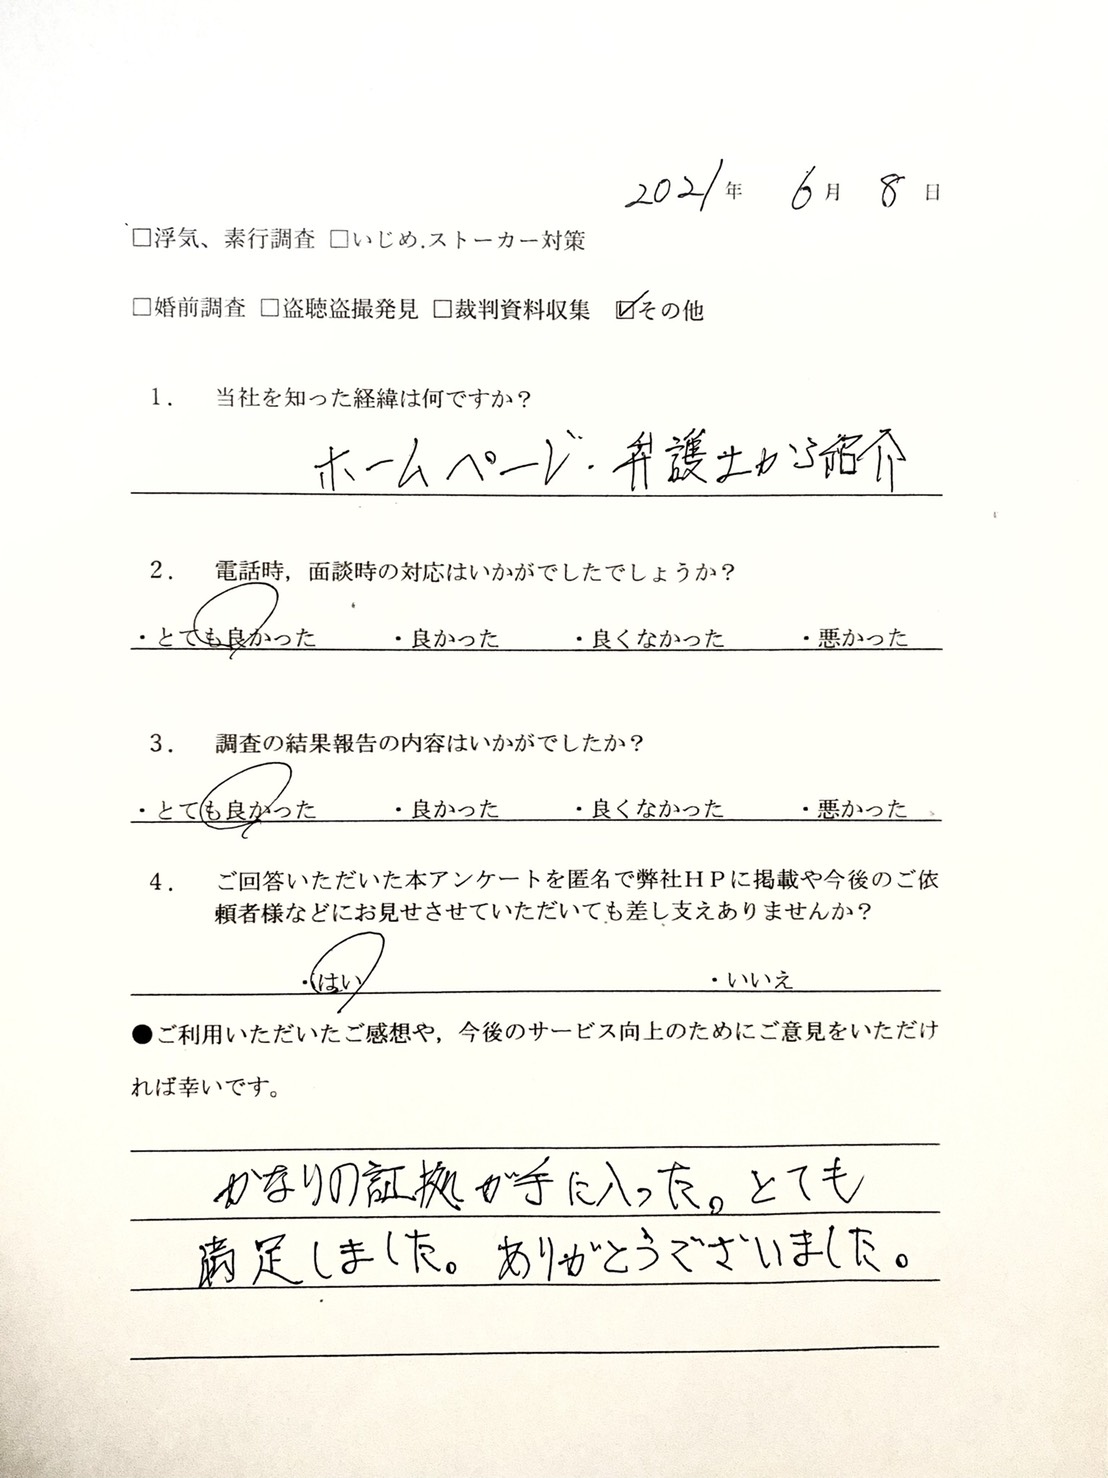 2021年 6月 8日
□浮気、素行調査 □いじめ.ストーカー対策
□婚前調査 □盗聴盗撮発見 □裁判資料収集 ☑その他
1. 当社を知った経緯は何ですか？
ホームページ・弁護士から紹介
2. 電話時，面談時の対応はいかがでしたでしょうか？
・とても良かった ・良かった ・良くなかった ・悪かった
3. 調査の結果報告の内容はいかがでしたか？
・とても良かった ・良かった ・良くなかった ・悪かった
4. ご回答いただいた本アンケートを匿名で弊社ＨＰに掲載や今後のご依
頼者様などにお見せさせていただいても差し支えありませんか？
・はい ・いいえ
●ご利用いただいたご感想や，今後のサービス向上のためにご意見をいただけ
れば幸いです。
かなりの証拠が手に入った。とても
満足しました。ありがとうございました。